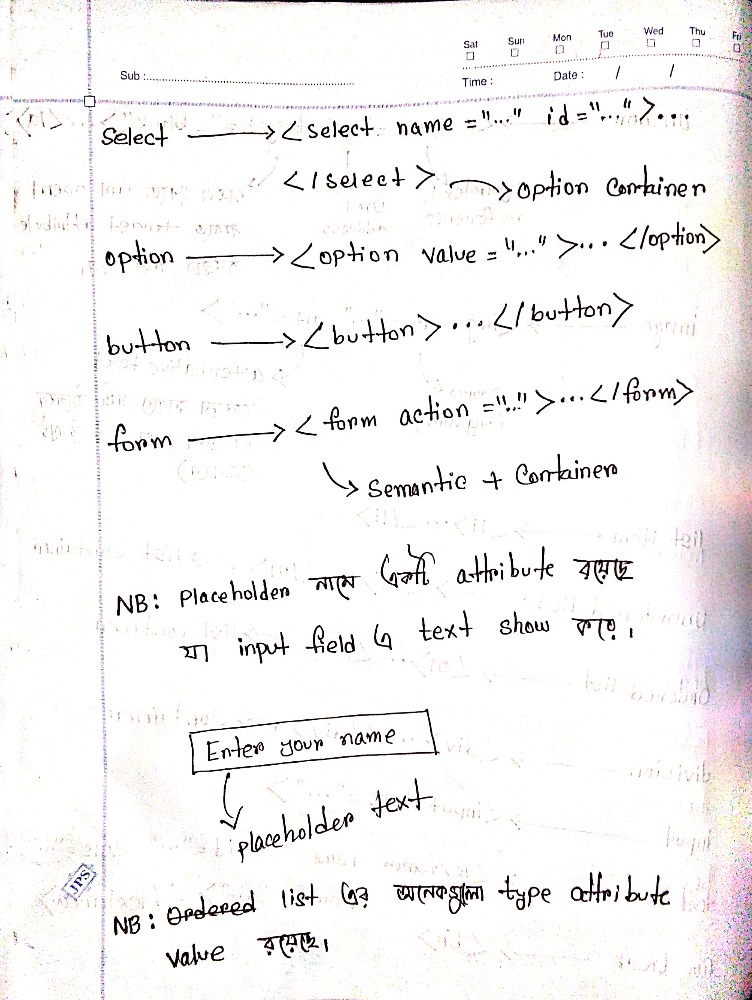 Sat Sun Mon Tue Wed Thu Fri
Sub :
Time : Date : / /
Select → <select name = "..." id = "..." >...
</select> → option container
option → <option value = "..." >... </option>
button → <button> ... </button>
form → < form action = "..." >... </form>
↳ Semantic + Container
NB: Placeholder নামে একটি attribute রয়েছে
যা input field এ text show করে।
Enter your name
placeholder text
JPS
NB: Ordered list এর অনেকগুলো type attribute
value রয়েছে।